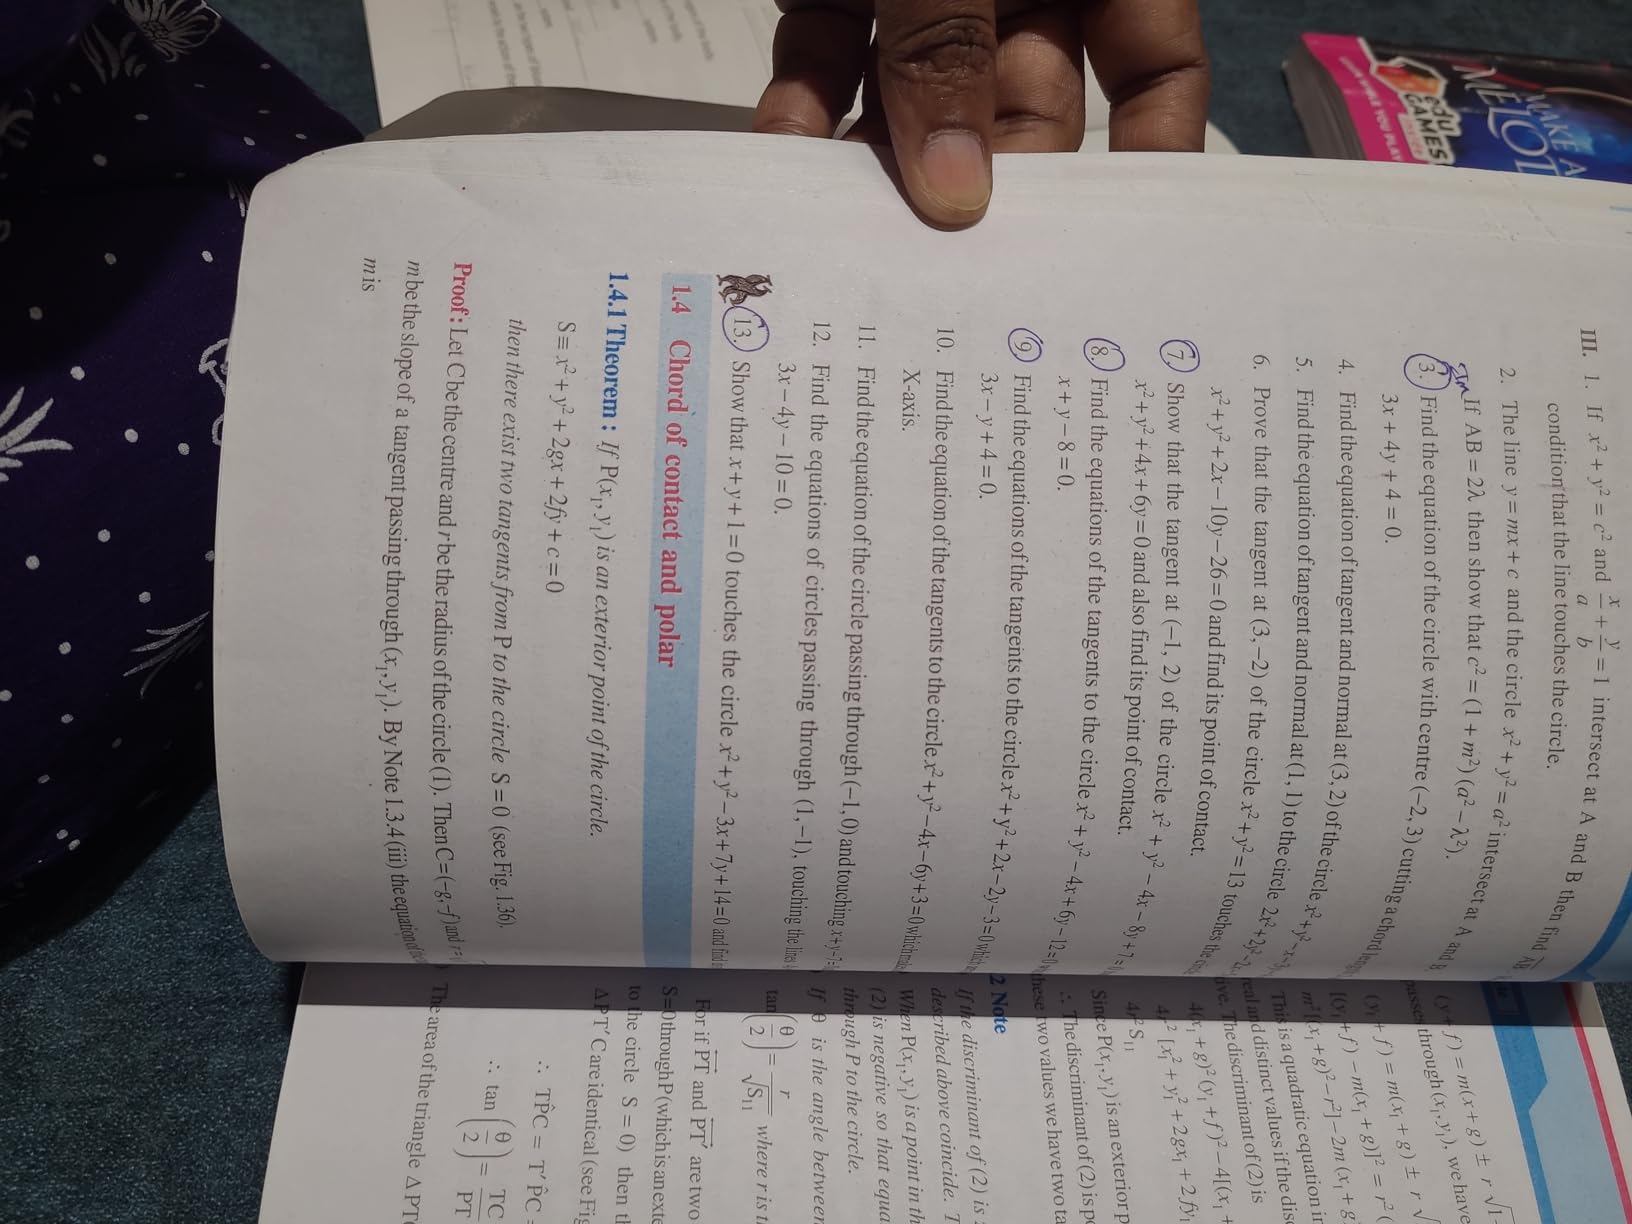 III. 1. If x² + y² = c² and x/a + y/b = 1 intersect at A and B then find
condition that the line touches the circle.
2. The line y = mx + c and the circle x² + y² = a² intersect at A and B
If AB = 2λ then show that c² = (1 + m²) (a² − λ²).
3. Find the equation of the circle with centre (−2, 3) cutting a chord
3x + 4y + 4 = 0.
4. Find the equation of tangent and normal at (3, 2) of the circle
5. Find the equation of tangent and normal at (1, 1) to the circle 2x² + 2y²
6. Prove that the tangent at (3, −2) of the circle x² + y² = 13 touches the
x² + y² + 2x − 10y − 26 = 0 and find its point of contact.
7. Show that the tangent at (−1, 2) of the circle x² + y² − 4x − 8y + 7 = 0
x² + y² + 4x + 6y = 0 and also find its point of contact.
8. Find the equations of the tangents to the circle x² + y² − 4x + 6y − 12 = 0
x + y − 8 = 0.
9. Find the equations of the tangents to the circle x² + y² + 2x − 2y − 3 = 0
3x − y + 4 = 0.
10. Find the equation of the tangents to the circle x² + y² − 4x − 6y + 3 = 0
X-axis.
11. Find the equation of the circle passing through (−1, 0) and touching x + y − 7 =
12. Find the equations of circles passing through (1, −1), touching the lines
3x − 4y − 10 = 0.
13. Show that x + y + 1 = 0 touches the circle x² + y² − 3x + 7y + 14 = 0 and find
1.4 Chord of contact and polar
1.4.1 Theorem : If P(x₁, y₁) is an exterior point of the circle.
S ≡ x² + y² + 2gx + 2fy + c = 0
then there exist two tangents from P to the circle S = 0 (see Fig. 1.36).
Proof : Let C be the centre and r be the radius of the circle (1). Then C = (−g, −f) and r =
m be the slope of a tangent passing through (x₁, y₁). By Note 1.3.4 (iii) the equation of
m is
(y + f) = m(x + g) ± r √1
passes through (x₁, y₁), we have
(y₁ + f) = m(x₁ + g) ± r √
[(y₁ + f) − m(x₁ + g)]² = r²
m² [(x₁ + g)² − r²] − 2m (x₁ + g
This is a quadratic equation in
real and distinct values if the dis
The discriminant of (2) is
4(x₁ + g)² (y₁ + f)² − 4[(x₁ +
4r² [x₁² + y₁² + 2gx₁ + 2fy₁
4r² S₁₁
Since P(x₁, y₁) is an exterior p
∴ The discriminant of (2) is po
these two values we have two ta
2 Note
If the discriminant of (2) is
described above coincide. T
When P(x₁, y₁) is a point in th
(2) is negative so that equa
through P to the circle.
If θ is the angle between
tan(θ/2) = r/√S₁₁ where r is t
For if PT and PT′ are two
S = 0 through P (which is an exte
to the circle S = 0) then th
Δ PT′ C are identical (see Fig
∴ TP̂C = T′P̂C =
∴ tan (θ/2) = TC/PT
The area of the triangle Δ PT
edu
GAMES
MAKE A